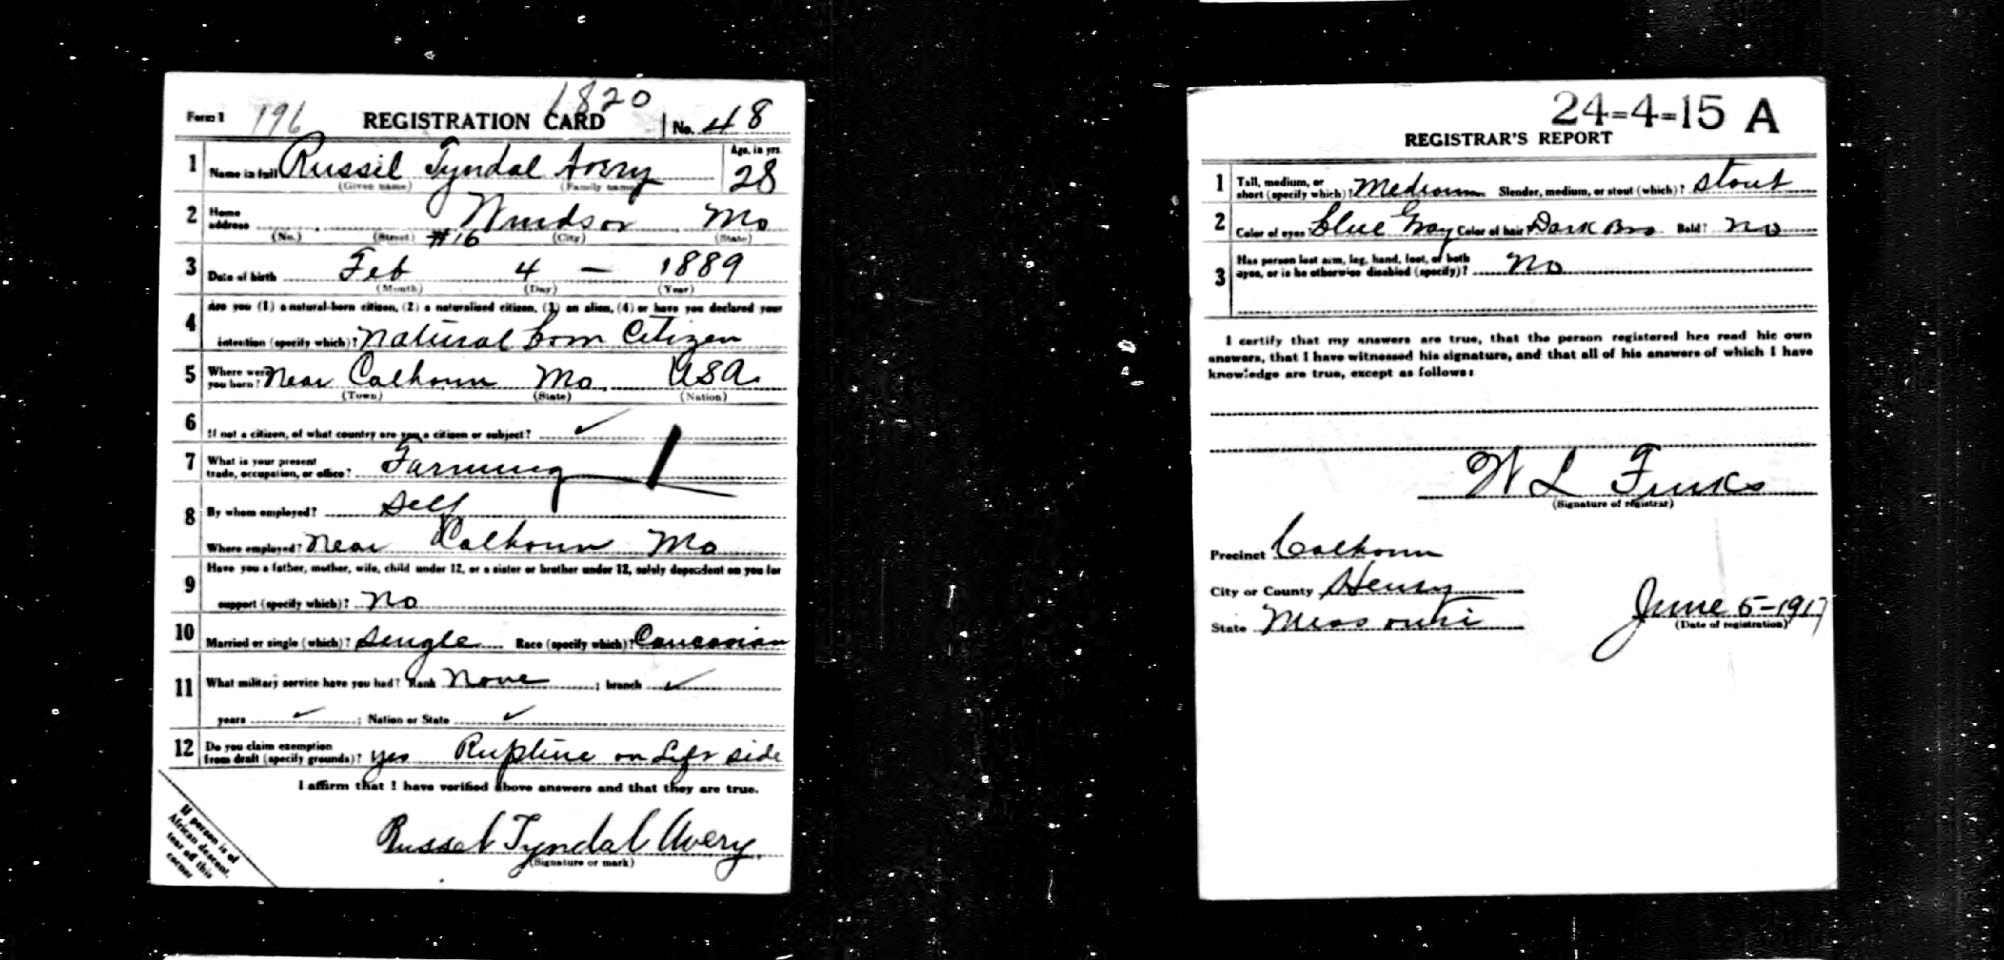 Form 1 196 REGISTRATION CARD 1820 No. 48
1 Name in full Russil Tyndal Avery Age, in yrs. 28
(Given name) (Family name)
2 Home address Windsor Mo
(No.) (Street) #16 (City) (State)
3 Date of birth Feb 4 — 1889
(Month) (Day) (Year)
4 Are you (1) a natural-born citizen, (2) a naturalized citizen, (3) an alien, (4) or have you declared your
intention (specify which)? Natural born Citizen
5 Where were you born? Near Calhoun Mo. USA.
(Town) (State) (Nation)
6 If not a citizen, of what country are you a citizen or subject? ✓
7 What is your present trade, occupation, or office? Farming
8 By whom employed? Self
Where employed? Near Calhoun Mo
9 Have you a father, mother, wife, child under 12, or a sister or brother under 12, solely dependent on you for
support (specify which)? No
10 Married or single (which)? Single Race (specify which)? Caucasian
11 What military service have you had? Rank None ; branch ✓
years ✓ ; Nation or State ✓
12 Do you claim exemption from draft (specify grounds)? yes Rupture on Left side
I affirm that I have verified above answers and that they are true.
Russel Tyndal Avery
(Signature or mark)
If person is of
African descent,
tear off this
corner
24-4-15 A
REGISTRAR'S REPORT
1 Tall, medium, or short (specify which)? Medium Slender, medium, or stout (which)? Stout
2 Color of eyes Blue Gray Color of hair Dark Bro Bald? No
3 Has person lost arm, leg, hand, foot, or both eyes, or is he otherwise disabled (specify)? No
I certify that my answers are true, that the person registered has read his own
answers, that I have witnessed his signature, and that all of his answers of which I have
knowledge are true, except as follows:
W L Finks
(Signature of registrar)
Precinct Calhoun
City or County Henry
State Missouri
June 5-1917
(Date of registration)